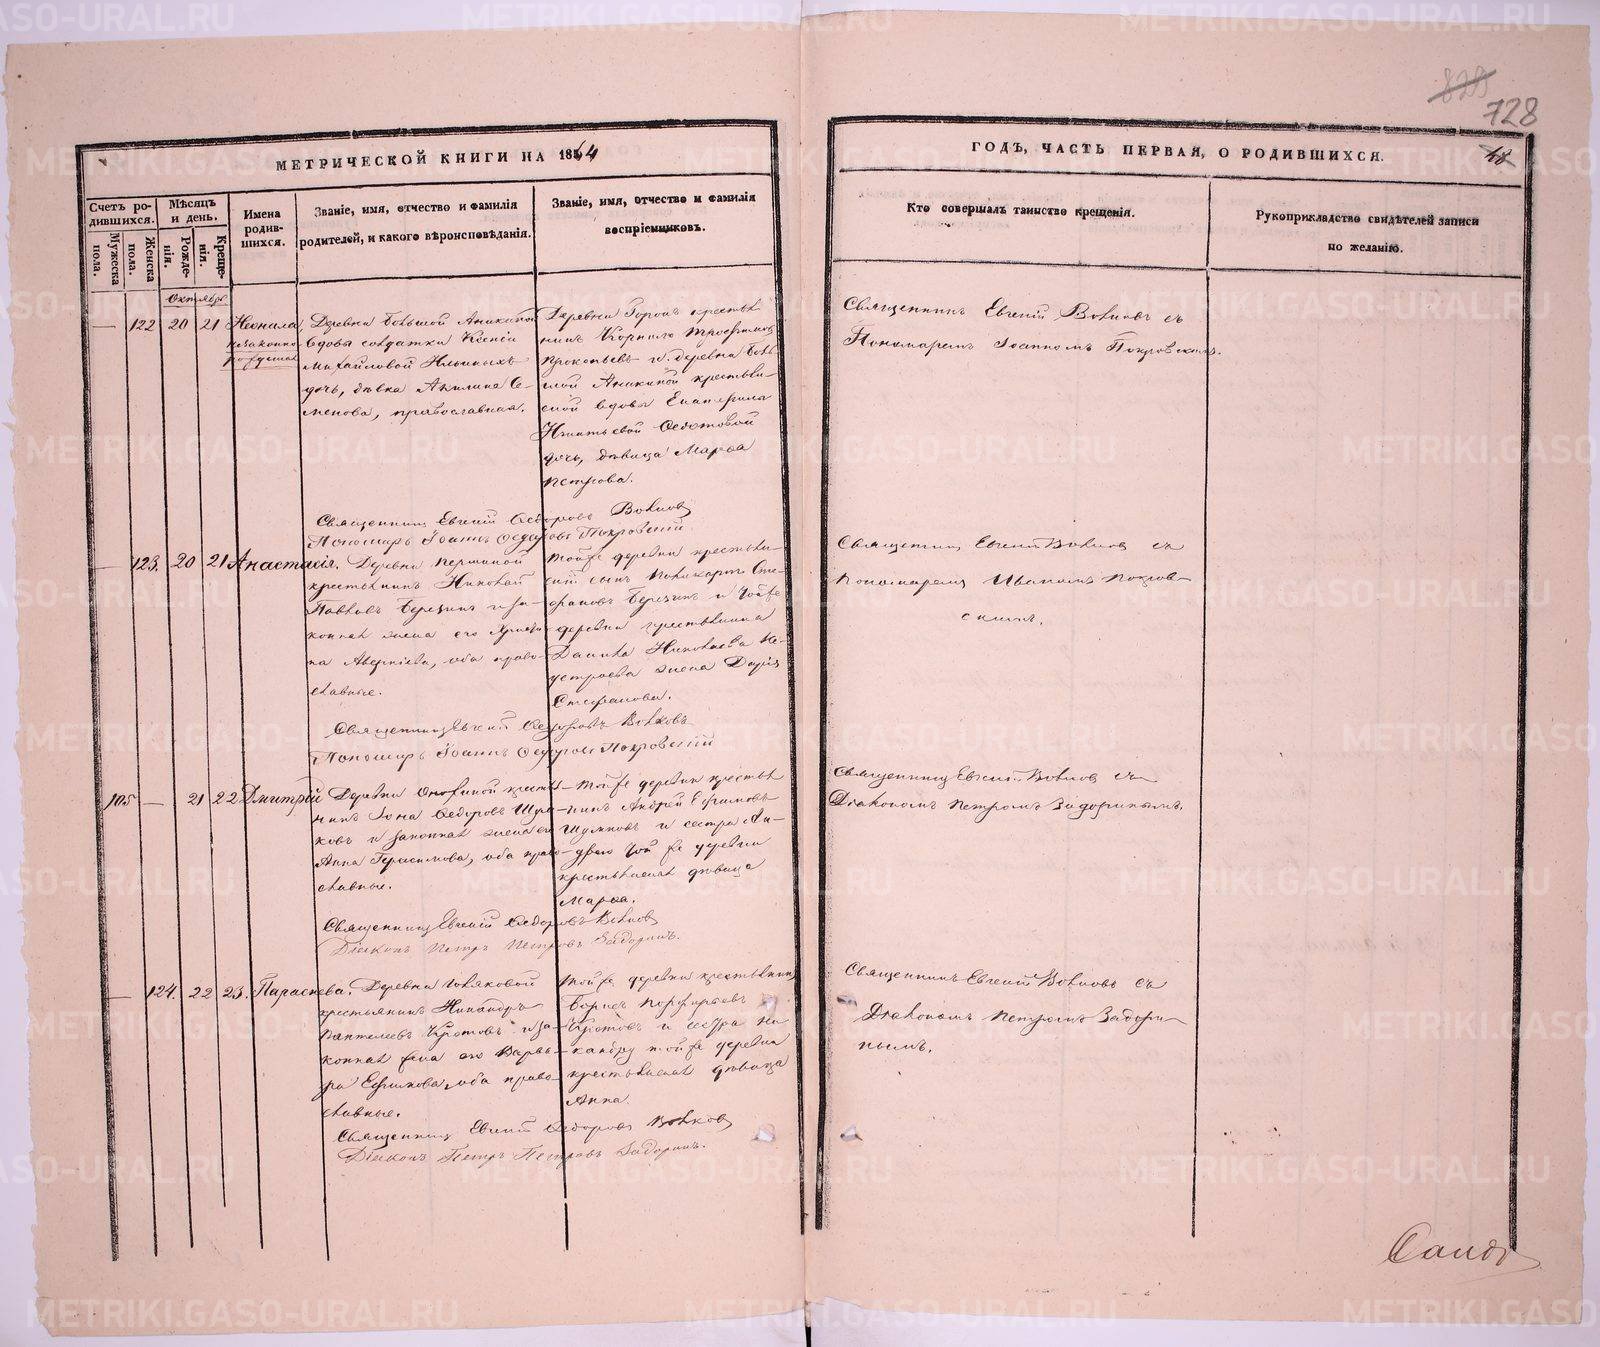 METRIKI.GASO-URAL.RU
728
МЕТРИЧЕСКОЙ КНИГИ НА 1864
ГОДЪ, ЧАСТЬ ПЕРВАЯ, О РОДИВШИХСЯ.
Счетъ ро-
дившихся.
Мужеска
пола.
Женска
пола.
Мѣсяцъ
и день.
Рожде-
нія.
Креще-
нія.
Имена
родив-
шихся.
Званіе, имя, отчество и фамилія
родителей, и какого вѣроисповѣданія.
Званіе, имя, отчество и фамилія
воспріемниковъ.
Кто совершалъ таинство крещенія.
Рукоприкладство свидѣтелей записи
по желанію.
Октябрь
— 122 20 21
Неонила,
незаконно-
рожденая
Деревни Большой Аникиной
вдовы солдатки Ксеніи
Михайловой Ильиныхъ
дочь, дѣвка Акилина Се-
менова, православная.
Деревни крестья-
нинъ Корнило Трофимовъ
Прокопьевъ и деревни Боль-
шой Аникиной крестьян-
ской вдовы Екатерины
Игнатьевой Ѳедотовой
дочь, дѣвица Марѳа
Петрова.
Священникъ Евгеній Волковъ съ
Пономаремъ Іоанномъ Покровскимъ.
Священникъ Евгеній Ѳедоровъ Волковъ
Пономарь Іоаннъ Ѳедоровъ Покровскій
— 123. 20 21
Анастасія.
Деревни Першиной
крестьянинъ Николай
Павловъ Березинъ и за-
конная жена его Христи-
на Аверкіева, оба право-
славные.
Тойже деревни крестьян-
скій сынъ Поликарпъ Сте-
фановъ Березинъ и тойже
деревни крестьянина
Данила Николаева
жена Дарья
Стефанова.
Священникъ Евгеній Волковъ съ
Пономаремъ Иваномъ Покров-
скимъ.
Священникъ Евгеній Ѳедоровъ Волковъ
Пономарь Іоаннъ Ѳедоровъ Покровскій
105 — 21 22
Дмитрій
Деревни крестья-
нинъ Іона Ѳедоровъ Шум-
ковъ и законная жена его
Анна Герасимова, оба право-
славные.
Тойже деревни крестья-
нинъ Андрей Ефимовъ
Шумковъ и сестра Ан-
дрею той же деревни
крестьянская дѣвица
Марѳа.
Священникъ Евгеній Волковъ съ
Діакономъ Петромъ Задоринымъ.
Священникъ Евгеній Ѳедоровъ Волковъ
Діаконъ Петръ Петровъ Задоринъ.
— 124. 22 23.
Параскева.
Деревни
крестьянинъ Никандръ
Пантелеевъ Кротовъ и за-
конная жена его Варва-
ра Ефимова, оба право-
славные.
Тойже деревни крестьянинъ
Борисъ Порфирьевъ
Кротовъ и сестра Ни-
кандру тойже деревни
крестьянская дѣвица
Анна.
Священникъ Евгеній Волковъ съ
Діакономъ Петромъ Задори-
нымъ.
Священникъ Евгеній Ѳедоровъ Волковъ
Діаконъ Петръ Петровъ Задоринъ.